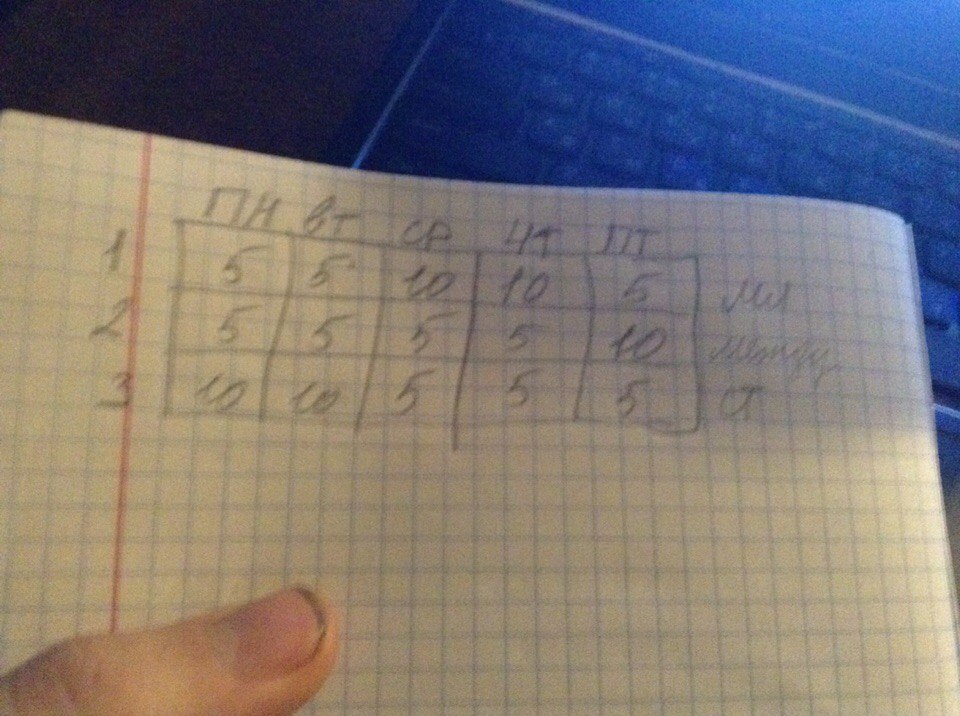 ПН ВТ СР ЧТ ПТ
1 5 5 10 10 5 Мл
2 5 5 5 5 10
3 10 10 5 5 5 СТ